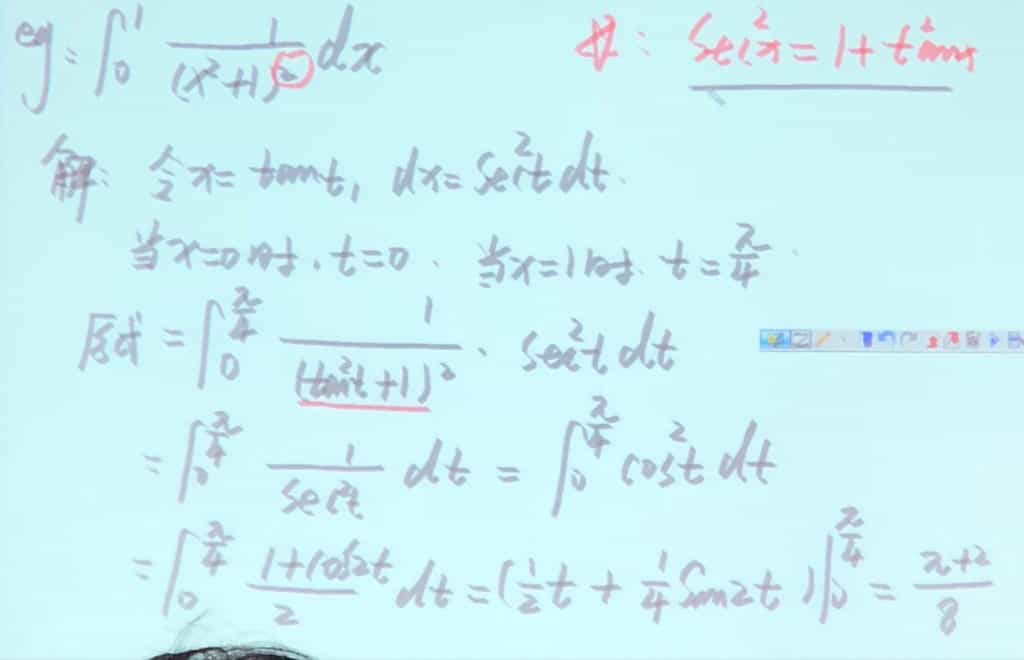 eg: ∫₀¹ 1/(x²+1)² dx
注: sec²x = 1 + tan²x
解: 令 x = tant, dx = sec²t dt.
当x=0时, t=0. 当x=1时. t = π/4.
原式 = ∫₀^(π/4) 1/(tan²t+1)² · sec²t dt
= ∫₀^(π/4) 1/sec²t dt = ∫₀^(π/4) cos²t dt
= ∫₀^(π/4) (1+cos2t)/2 dt = (1/2 t + 1/4 sin2t)|₀^(π/4) = (π+2)/8